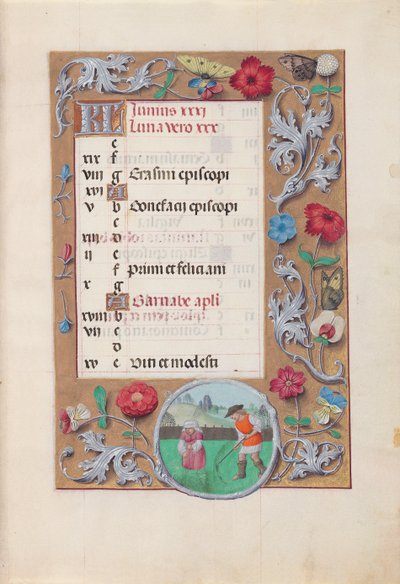 KL Iunius xxxi
Luna vero xxx
e
xix f
viii g Erasmi episcopi
xvi A
v b Bonefacij episcopi
c
xiii D
ii e
f Primi et feliciani
x g
A Barnabe apli
xviii b
vii c
d
xv e Viti et modesti